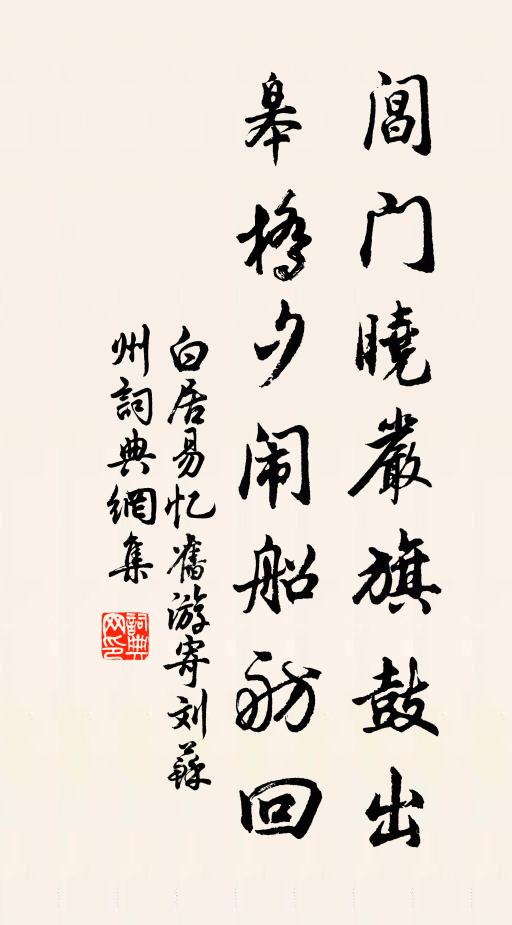 閶门曉嚴旗鼓出
皋橋夕闹船舫回
白居易忆舊游寄刘蘇
州詞典網集
詞典网印